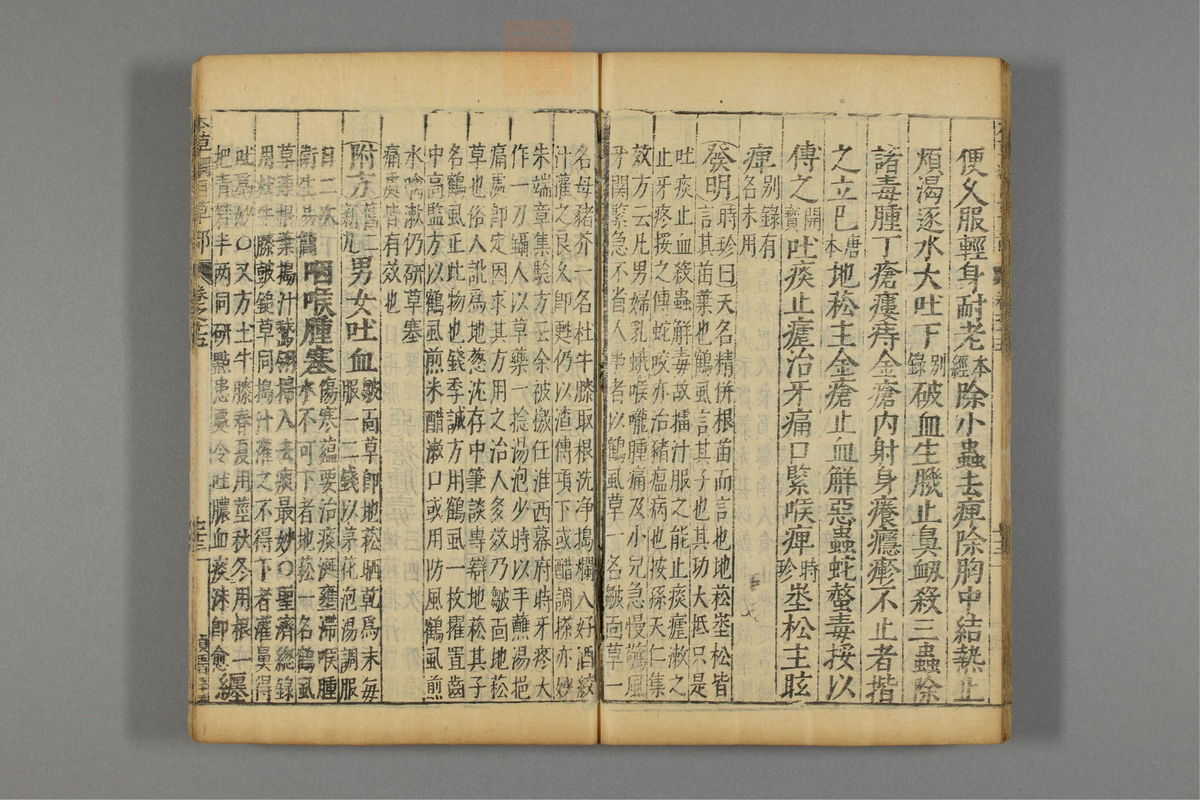 便久服輕身耐老本經除小蟲去痺除胸中結熱止
煩渴逐水大吐下別錄破血生肌止鼻衂殺三蟲除
諸毒腫丁瘡瘻痔金瘡内射身癢癮𤺋不止者揩
之立已唐本地菘主金瘡止血解惡蟲蛇螫毒挼以
傅之開寶吐痰止瘧治牙痛口緊喉痺時珍埊松主眩
痺別錄有名未用
發明時珍曰天名精併根苗而言也地菘埊松皆
言其苗葉也鶴虱言其子也其功大抵只是
吐痰止血殺蟲解毒故擂汁服之能止痰瘧漱之
止牙疼挼之傅蛇咬亦治豬瘟病也按孫天仁集
效方云凡男婦乳蛾喉嚨腫痛及小兒急慢驚風
牙關緊急不省人事者以鶴虱草一名皺面草一
名母豬芥一名杜牛膝取根洗净搗爛入好酒絞
汁灌之良久即甦仍以渣傅項下或醋調搽亦妙
朱端章集驗方云余被檄任淮西幕府時牙疼大
作一刀鑷人以草藥一捻湯泡少時以手蘸湯挹
痛處即定因求其方用之治人多效乃皺面地菘
草也俗人訛爲地葱沈存中筆談專辯地菘其子
名鶴虱正此物也錢季誠方用鶴虱一枚擢置齒
中高監方以鶴虱煎米醋漱口或用防風鶴虱煎
水噙漱仍研草塞
痛處皆有效也
附方舊二新九男女吐血皺面草即地菘晒乾爲末每
服一二錢以茅花泡湯調服
日二次衛生易簡咽喉腫塞傷寒藴要治痰涎壅滯喉腫
水不可下者地菘一名鶴虱
草連根葉搗汁鵞翎掃入去痰最妙○聖濟總録
用杜牛膝皷鎚草同搗汁灌之不得下者灌鼻得
吐爲妙○又方土牛膝春夏用莖秋冬用根一
把青礬半两同研點患處令吐膿血痰沫即愈纏